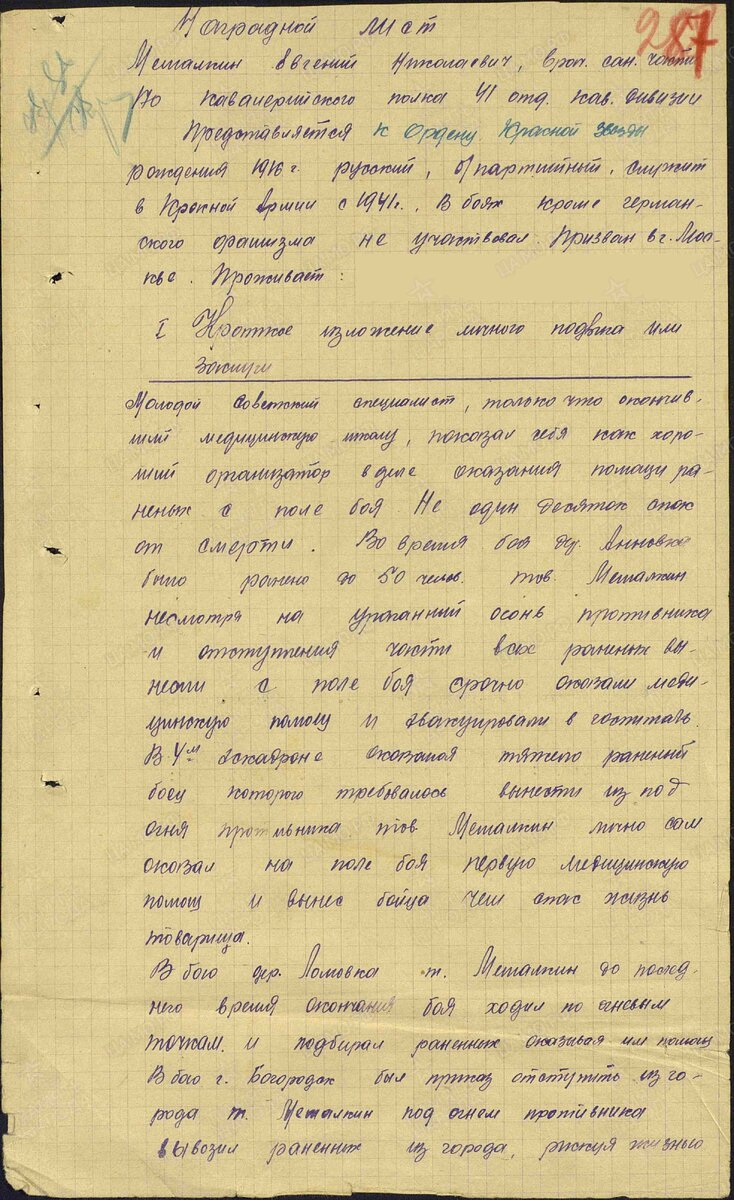 287
Наградной лист
Металкин Евгений Николаевич, врач. сан. части
170 кавалерийского полка 41 отд. кав. дивизии
Представляется к Ордену Красной звезды
рождения 1916 г. русский, б/партийный. служит
в Красной Армии с 1941 г. В боях кроме герман-
ского фашизма не участвовал. Призван в г. Мос-
кве. Проживает:
I Краткое изложение личного подвига или
заслуги
Молодой советский специалист, только что окончив-
ший медицинскую школу, показал себя как хоро-
ший организатор в деле оказания помощи ра-
неных с поле боя. Не один десяток спас
от смерти. Во время боя дер. Анновка
было ранено до 50 челов. тов. Металкин
несмотря на ураганний огонь противника
и отступления части всех раненых вы-
несли с поле боя срочно оказали меди-
цинскую помощ и эвакуировали в госпиталь.
В 4м эскадроне оказался тяжело раненный
боец которого требовалось вынести из под
огня противника тов. Металкин лично сам
оказал на поле боя первую медицинскую
помощ и вынес бойца чем спас жизнь
товарища.
В бою дер. Ломовка т. Металкин до послед-
него время окончания боя ходил по огневым
точкам. и подбирал раненних оказывая им помощ
В бою г. Богородск был приказ отступить из го-
рода т. Металкин под огнем противника
вывозил раненних из города, рискуя жизнью